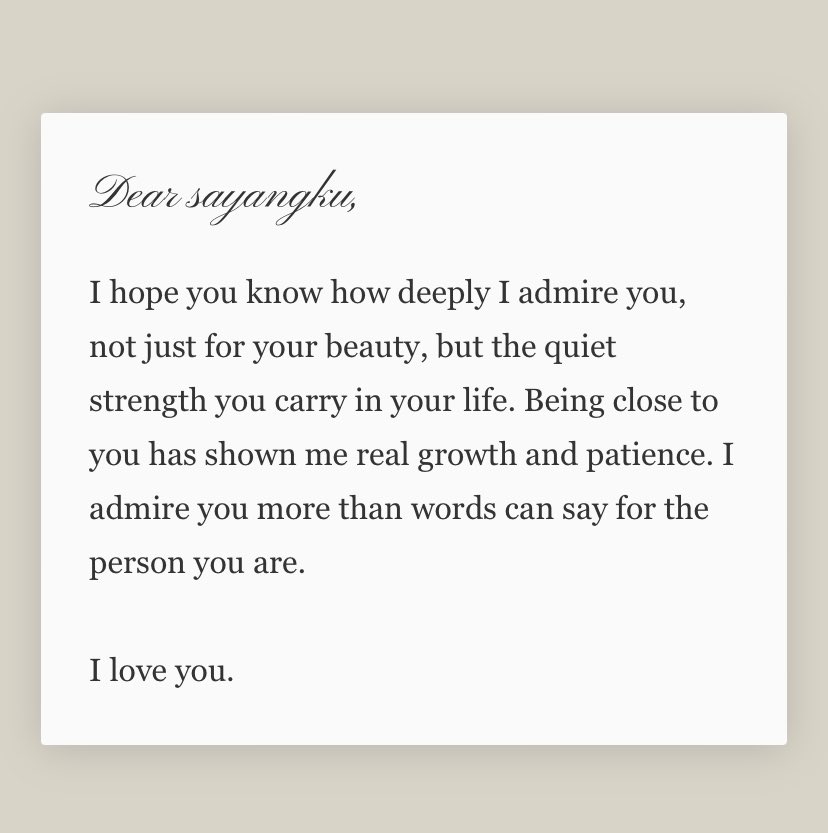 Dear sayangku,
I hope you know how deeply I admire you,
not just for your beauty, but the quiet
strength you carry in your life. Being close to
you has shown me real growth and patience. I
admire you more than words can say for the
person you are.
I love you.